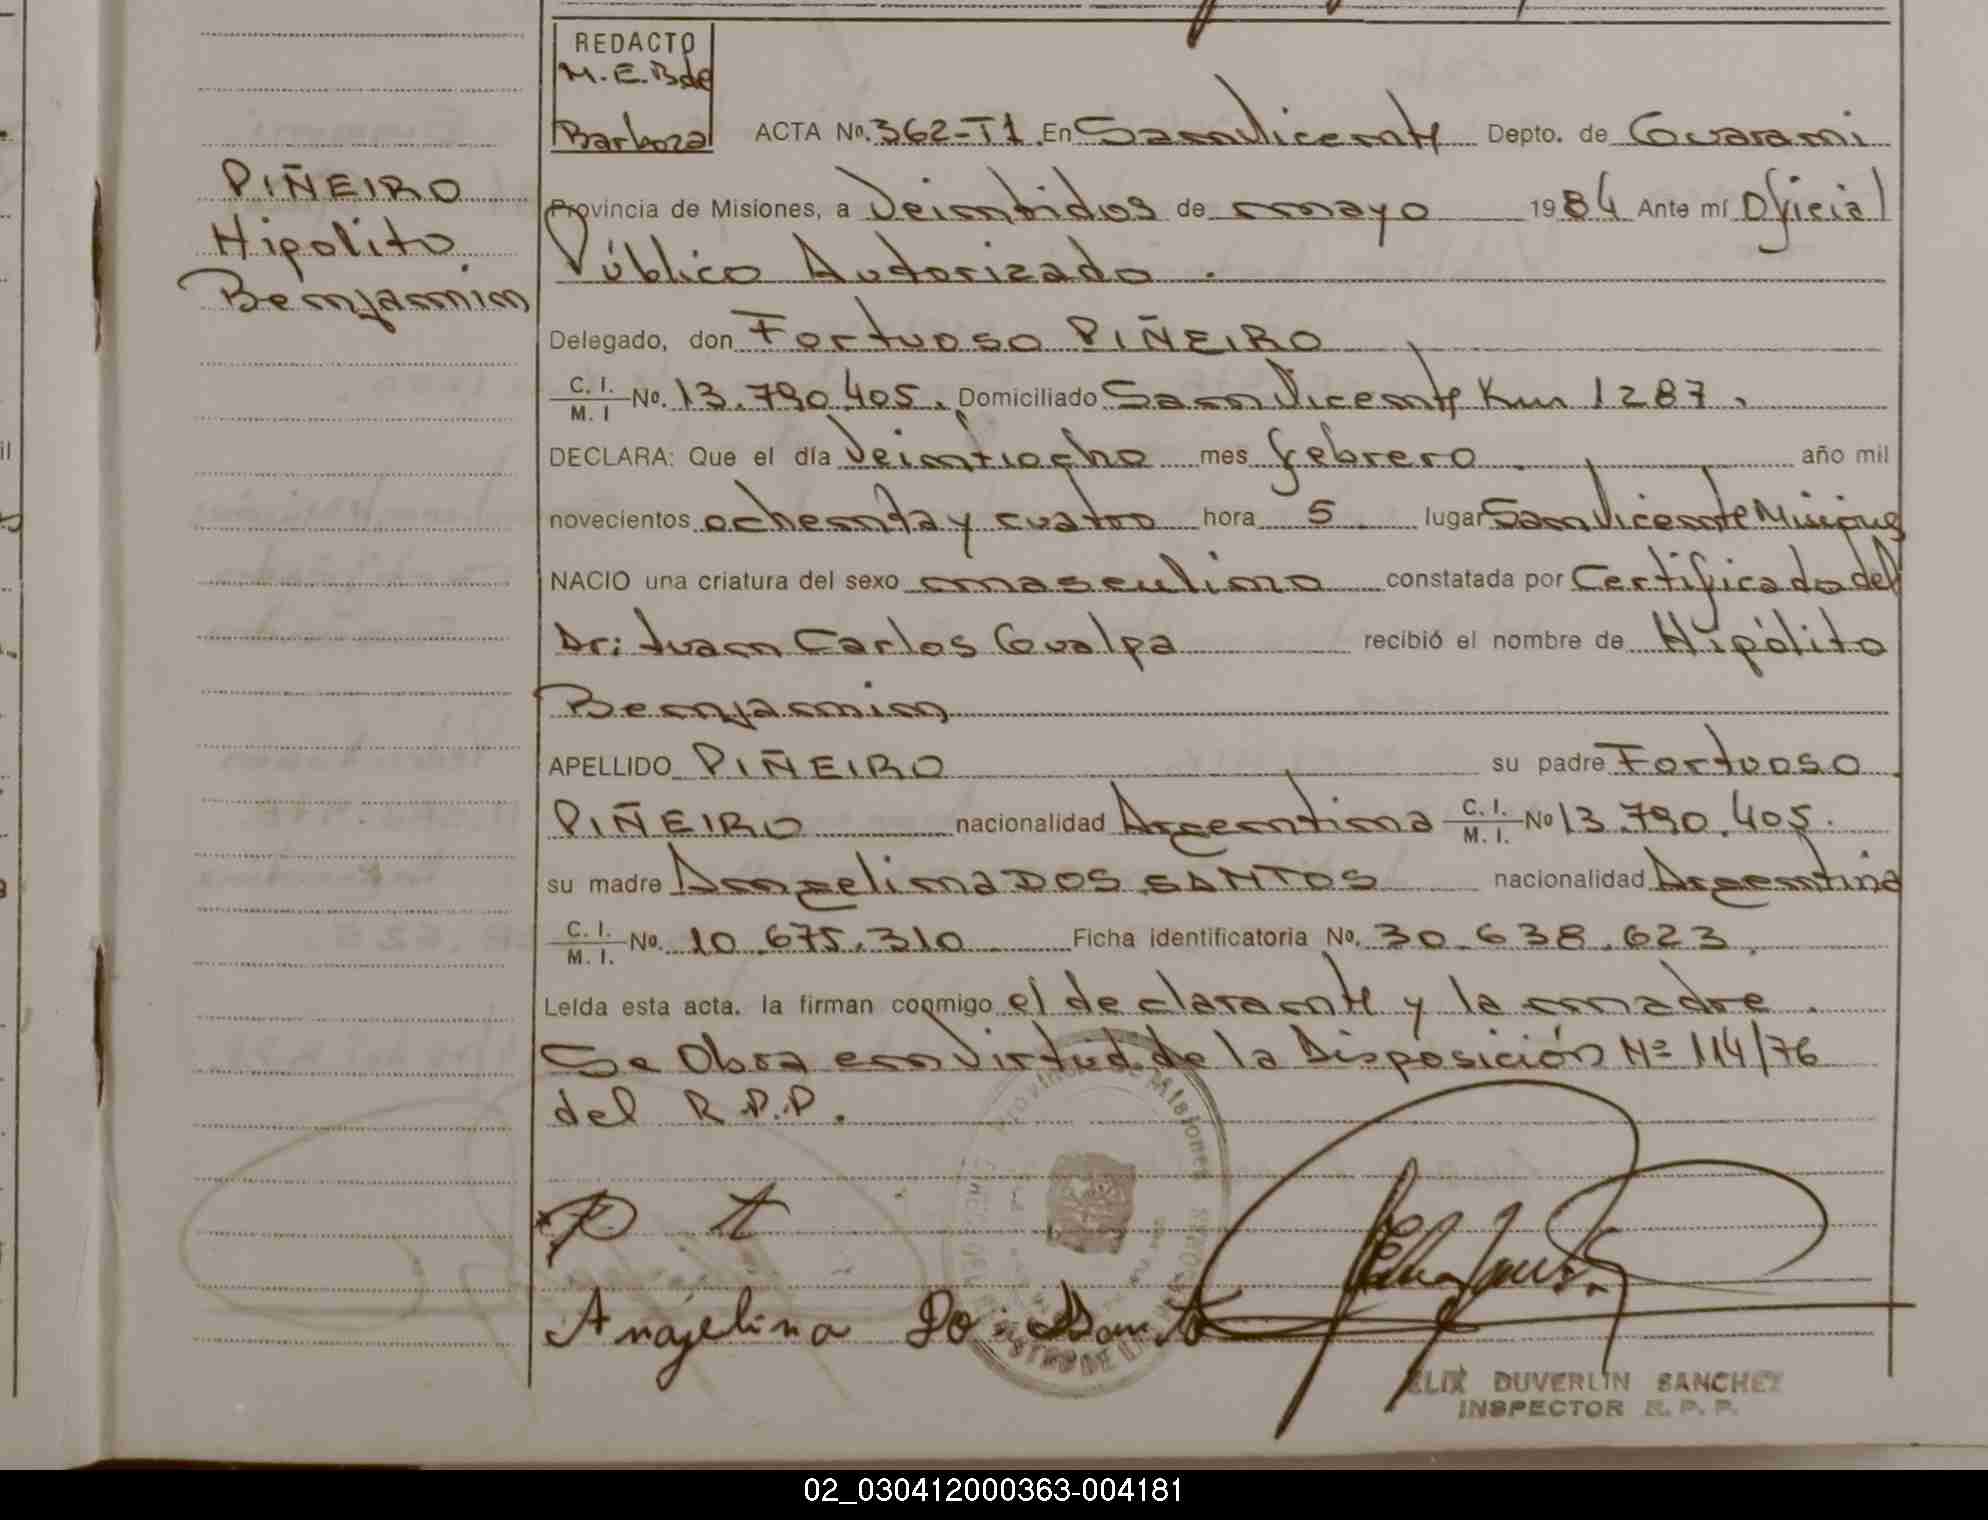 REDACTO
M.E.B de
Barboza
ACTA No. 362-T1. En San Vicente Depto. de Guarani
PIÑEIRO
Hipolito
Benjamin
Provincia de Misiones, a Veintidos de mayo 1984 Ante mí Oficial
Público Autorizado.
Delegado, don Fortuoso PIÑEIRO
C. I. / M. I No. 13.790.405. Domiciliado San Vicente Km 1287.
DECLARA: Que el día Veintiocho mes febrero año mil
novecientos ochenta y cuatro hora 5 lugar San Vicente Misiones
NACIO una criatura del sexo masculino constatada por Certificado del
Dr: Juan Carlos Gualpa recibió el nombre de Hipólito
Benjamin
APELLIDO PIÑEIRO su padre Fortuoso
PIÑEIRO nacionalidad Argentina C. I. / M. I. No 13.790.405.
su madre Angelina DOS SANTOS nacionalidad Argentina
C. I. / M. I. No. 10.675.310 Ficha identificatoria No. 30.638.623.
Leída esta acta. la firman conmigo el declarante y la madre.
Se Obra en Virtud de la Disposición Nº 114/76
del R.P.P.
Angelina Do Santo
ELIX DUVERLIN SANCHEZ
INSPECTOR R. P. P.
02_030412000363-004181